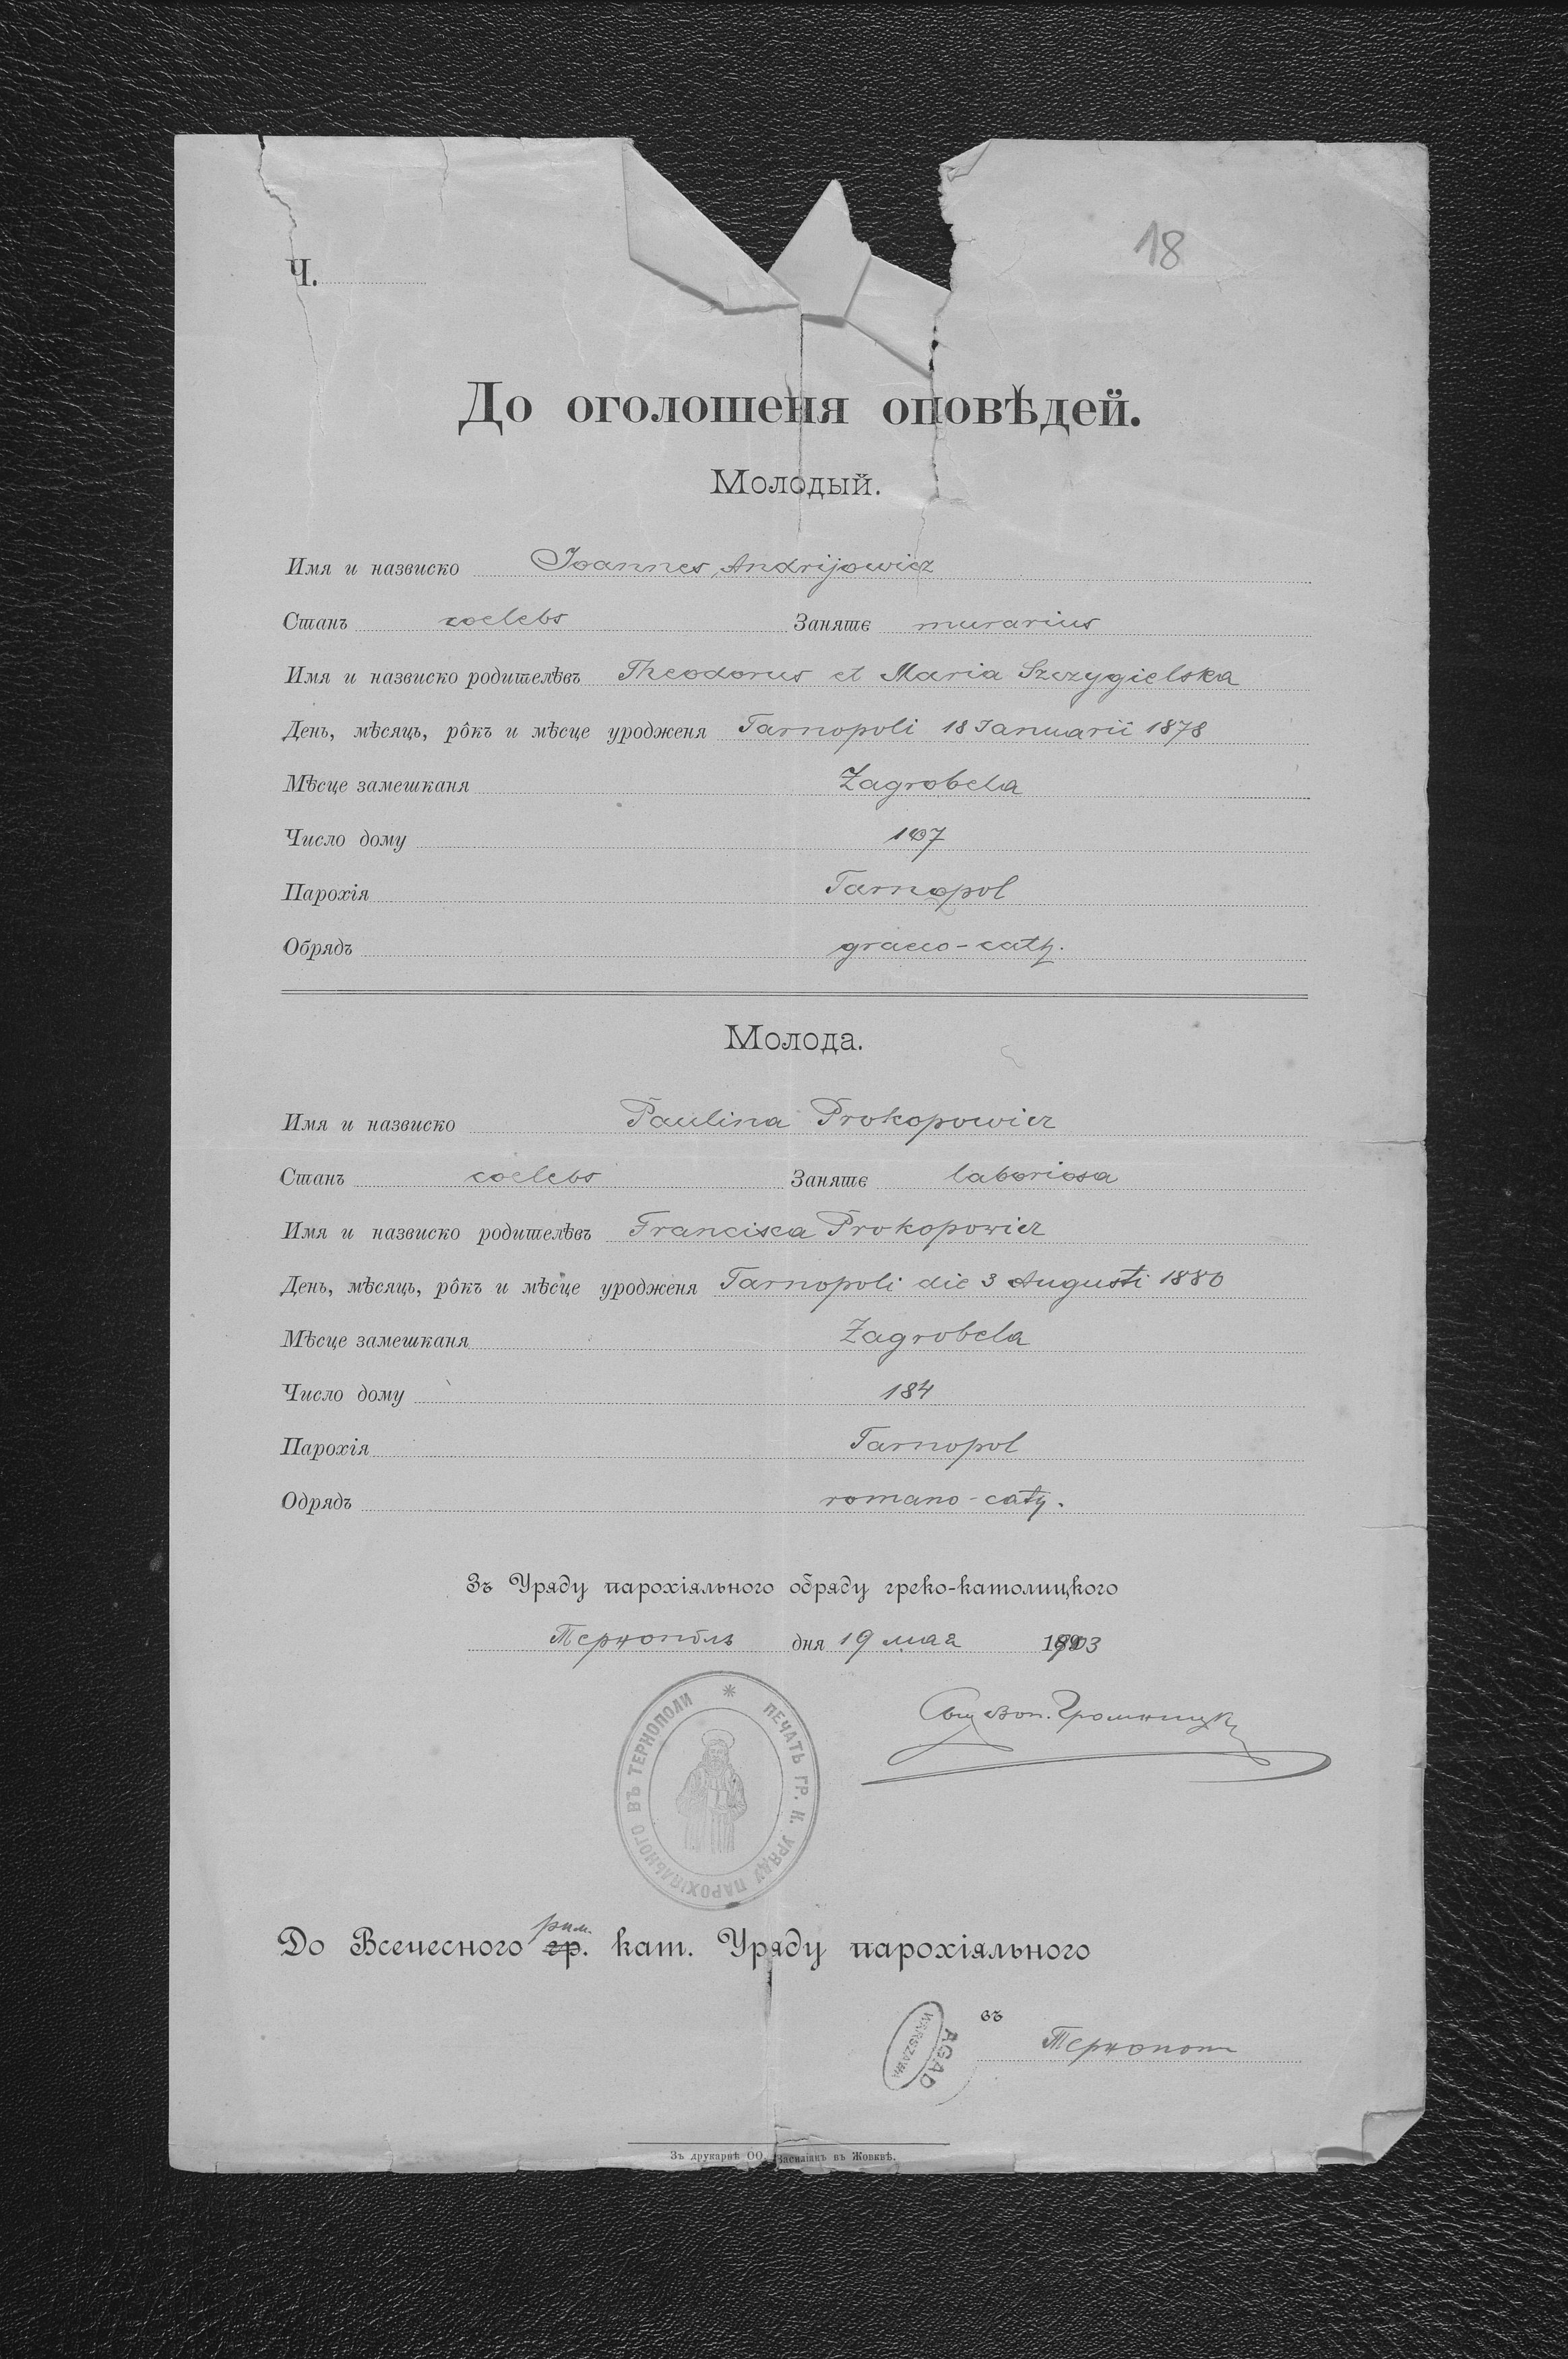 18
Ч.
До оголошеня оповѣдей.
Молодый.
Имя и назвиско Joannes Andrijowicz
Станъ coelebs Заняте murarius
Имя и назвиско родителѣвъ Theodorus et Maria Szczygielska
День, мѣсяць, рôкъ и мѣсце уродженя Tarnopoli 18 Januarii 1878
Мѣсце замешканя Zagrobela
Число дому 107
Парохія Tarnopol
Обрядъ graeco-cath.
Молода.
Имя и назвиско Paulina Prokopowicz
Станъ coelebs Заняте laboriosa
Имя и назвиско родителѣвъ Francisca Prokopowicz
День, мѣсяць, рôкъ и мѣсце уродженя Tarnopoli die 3 Augusti 1880
Мѣсце замешканя Zagrobela
Число дому 184
Парохія Tarnopol
Одрядъ romano-cath.
Зъ Уряду парохіяльного обряду греко-католицкого
Тернопôль дня 19 мая 1903
Громницкий
ПЕЧАТЬ ГР. К. УРЯДУ ПАРОХІЯЛЬНОГО ВЪ ТЕРНОПОЛИ
рим.
До Всечесного гр. кат. Уряду парохіяльного
въ Тернополи
AGAD
WARSZAWA
Зъ друкарнѣ ОО. Василіянъ въ Жовквѣ.